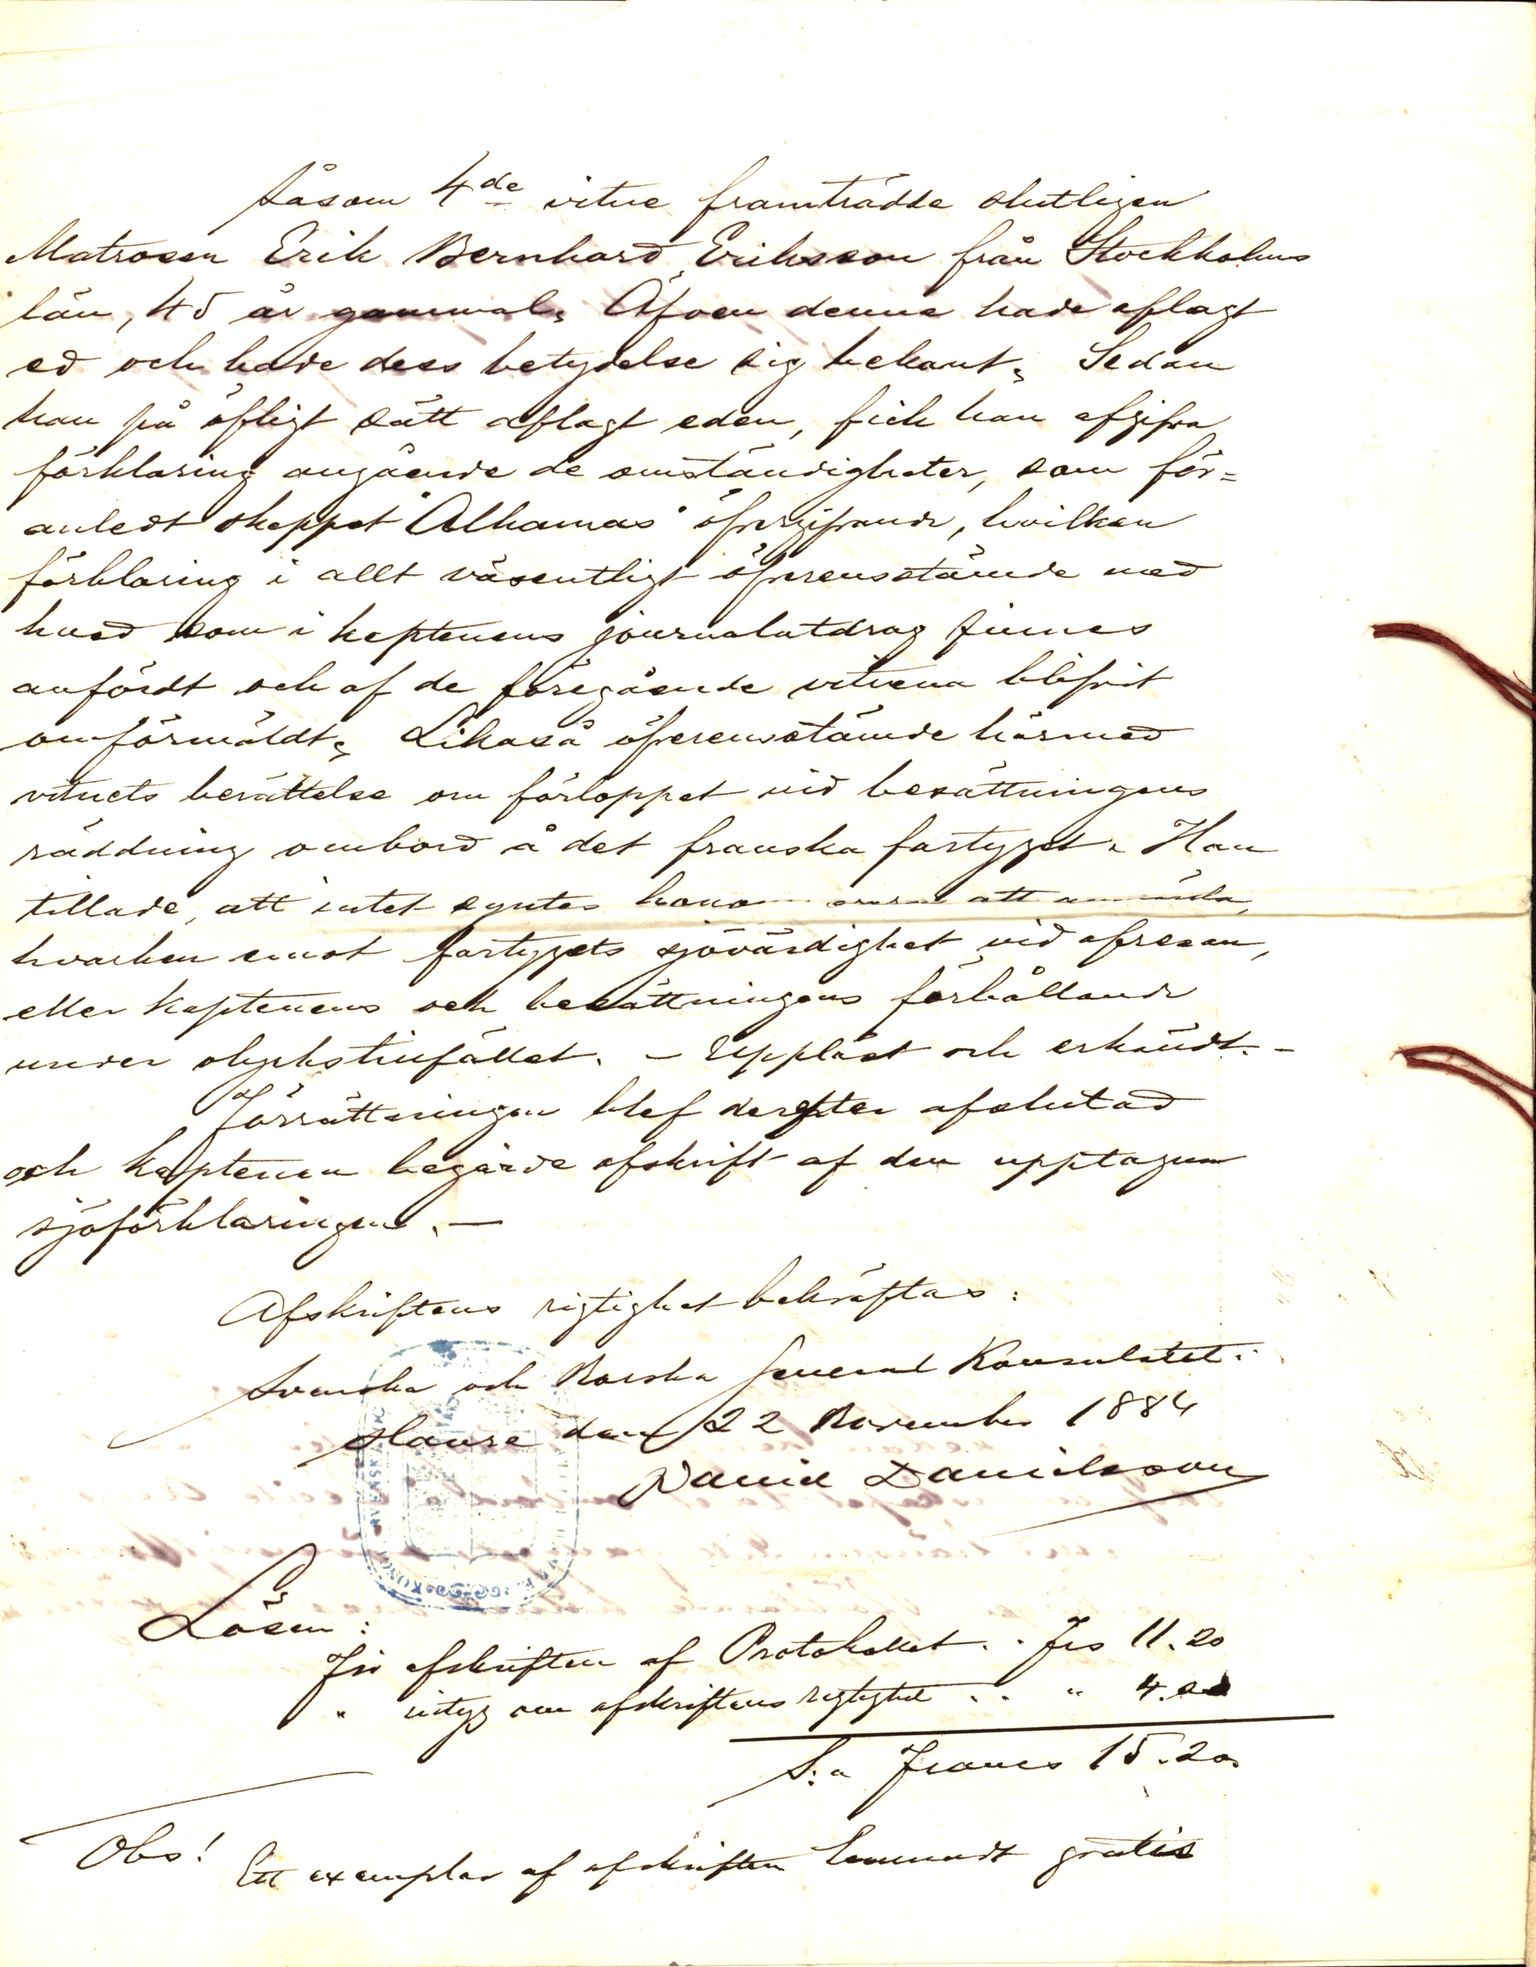 Såsom 4de vitne framträdde slutligen
Matrosen Erik Bernhard Eriksson från Stockholms
län, 45 år gammal. Äfven denne hade aflagt
ed och hade dess betydelse sig bekant. Sedan
han på öfligt sätt aflagt eden, fick han afgifva
förklaring angående de omständigheter, som för=
anledt skeppet "Alhamas" öfvergifvande, hvilken
förklaring i allt väsentligt öfverensstämde med
hvad som i kaptenens journalutdrag finnes
anfördt och af de föregående vitnena blifvit
omförmäldt. Likaså öfverensstämde härmed
vitnets berättelse om förloppet vid besättningens
räddning ombord å det franska fartyget. Han
tillade, att intet syntes honom att anmärka,
hvarken emot fartygets sjövärdighet vid afresan,
eller kaptenens och besättningens förhållande
under olyckstillfället. – Uppläst och erkändt. –
Förrättningen blef derefter afslutad
och kaptenen begärde afskrift af den upptagna
sjöförklaringen. –
Afskriftens rigtighet bekräftas:
Svenska och Norska General Konsulatet.
Havre den 22 November 1884
David Danielsson
Lösen:
För afskriften af Protokollet . . Frs 11.20
" intyg om afskriftens rigtighet . . " 4.00
S:a Francs 15.20.
Obs! Ett exemplar af afskriften lemnadt gratis